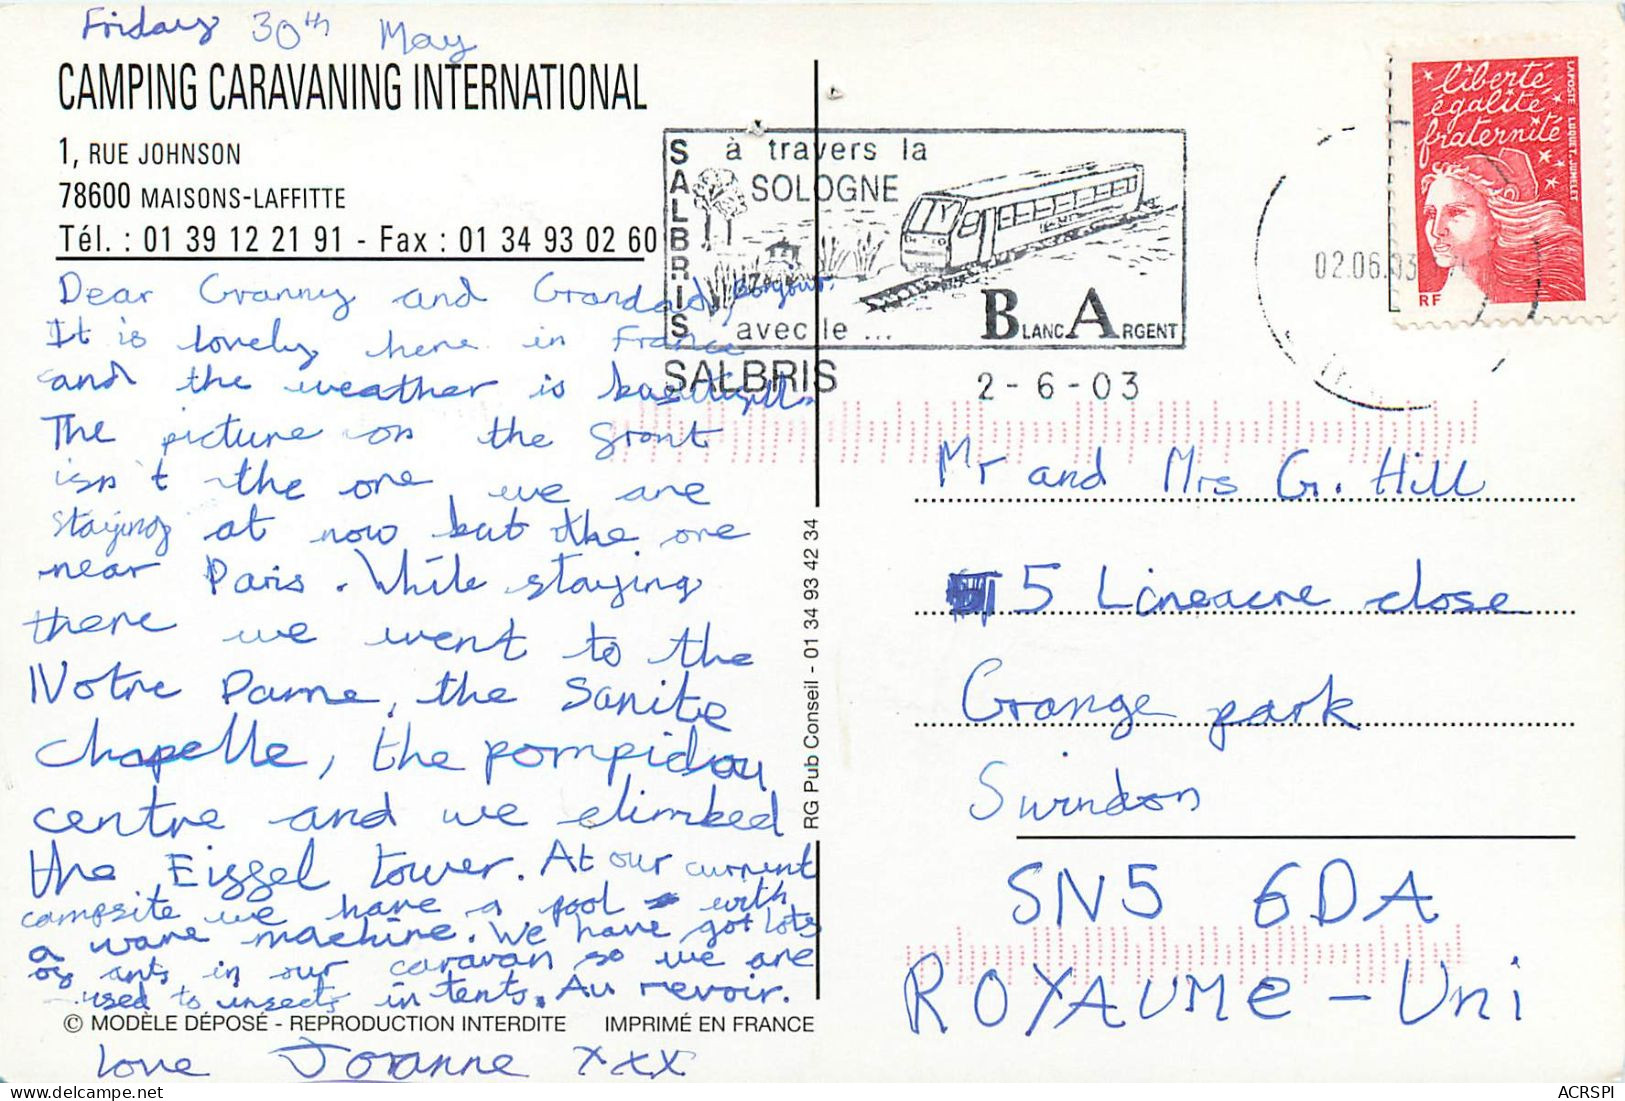 Friday 30th May
CAMPING CARAVANING INTERNATIONAL
1, RUE JOHNSON
78600 MAISONS-LAFFITTE
Tél. : 01 39 12 21 91 - Fax : 01 34 93 02 60
Dear Granny and Grandad, Bonjour.
It is lovely here in France
and the weather is beutifull.
The picture on the front
isn't the one we are
staying at now but the one
near Paris. While staying
there we went to the
Notre Dame, the Sanite
chapelle, the pompidou
centre and we climbed
the Eiffel tower. At our current
campsite we have a pool with
a wave machine. We have got lots
of ants in our caravan so we are
used to insects in tents. Au revoir.
© MODÈLE DÉPOSÉ - REPRODUCTION INTERDITE IMPRIMÉ EN FRANCE
love Joranne xxx
RG Pub Conseil - 01 34 93 42 34
SALBRIS
à travers la
SOLOGNE
avec le ...
BLANC ARGENT
SALBRIS
2-6-03
02.06.03
liberté
égalité
fraternité
LA POSTE LUQUET. JUMELET
RF
Mr and Mrs G. Hill
5 Lineacre close
Grange park
Swindon
SN5 6DA
ROYAUME-Uni
ACRSPI